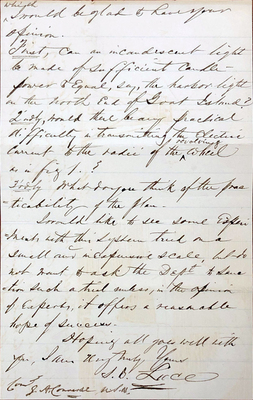 which
I would be glad to have your
opinion.
First, Can an incandescent light
be made of sufficient Candle-
power to Equal, say, the harbor light
on the North End of Goat Island?
2ndly, would there be any practical
difficulty in transmitting the Electric
current to the radii of the revolving wheel
as in fig 1.?
3rdly What do you think of the prac-
ticability of the plan.
I would like to see some Experi-
ments with this System tried on a
small and inexpensive scale, but do
not want to ask the Dept. to sanc-
tion such a trial unless, in the opinion
of Experts, it offers a reasonable
hope of success.
Hoping all goes well with
you, I am Very truly, Yours
S. B. Luce
Comdr
G. A. Converse U.S.N.